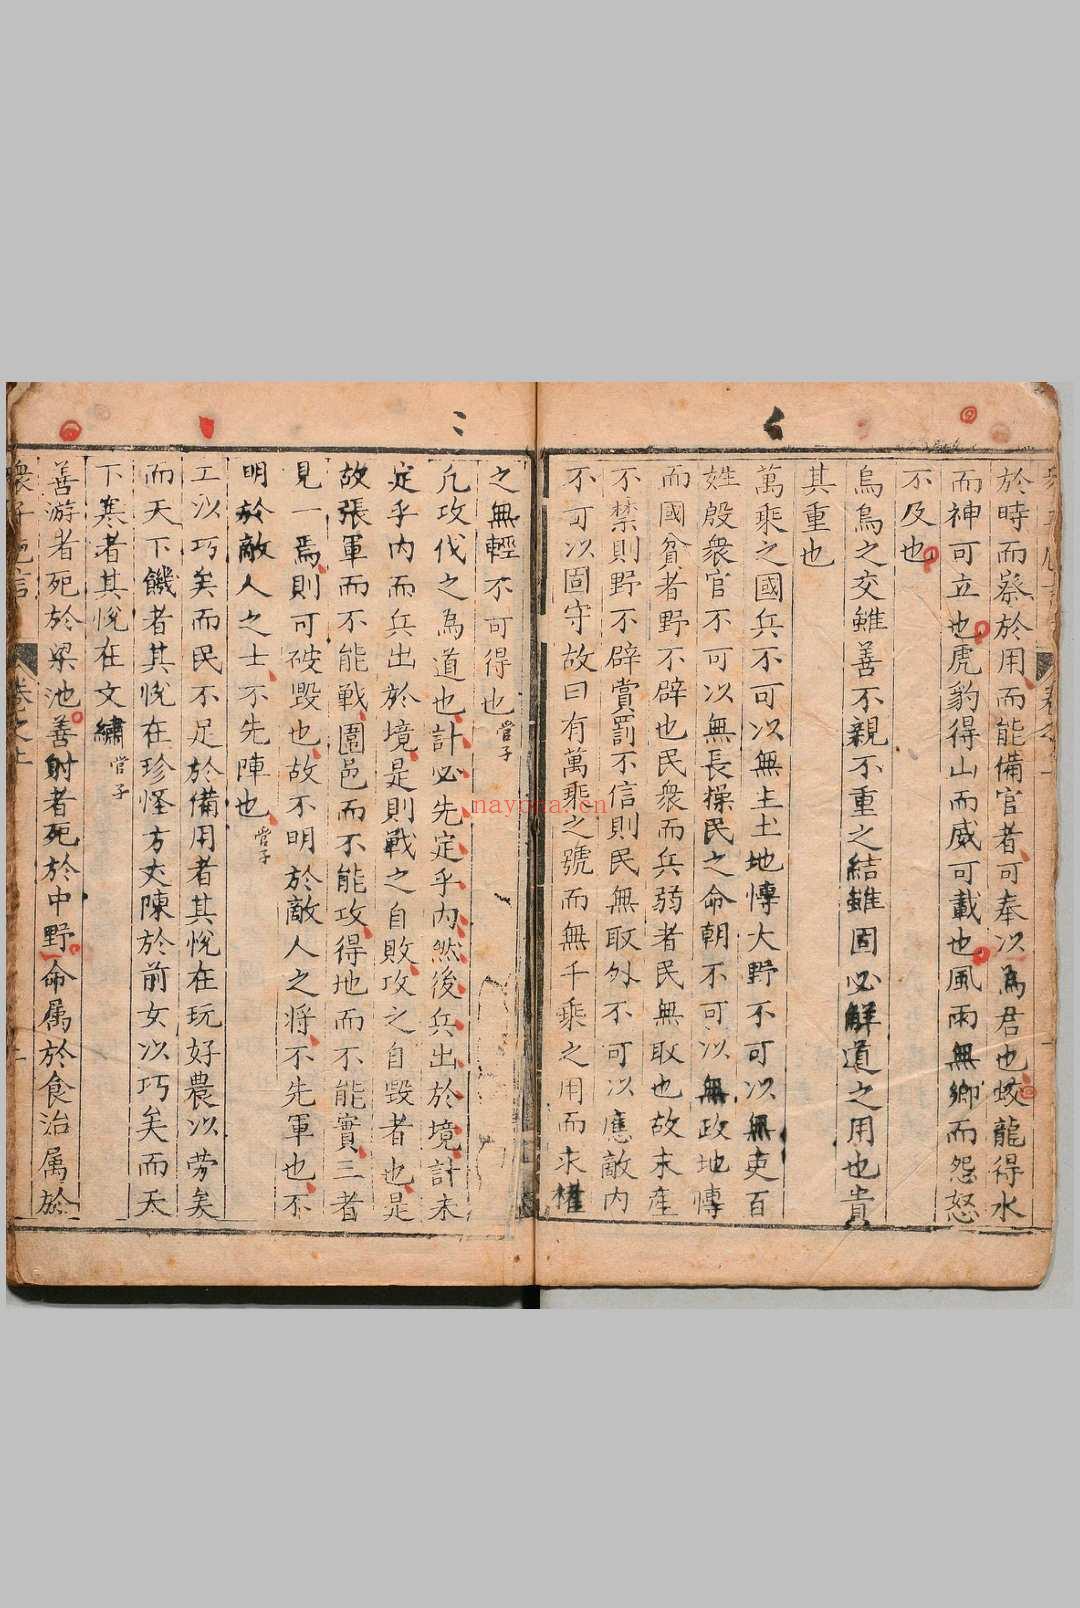 於時而察於用而能備官者可奉以為君也蛟龍得水
而神可立也虎豹得山而威可載也風雨無鄉而怨怒
不及也
烏鳥之交雖善不親不重之結雖固必解道之用也貴
其重也
萬乘之國兵不可以無主土地慱大野不可以無吏百
姓殷衆官不可以無長操民之命朝不可以無政地慱
而國貧者野不辟也民衆而兵弱者民無取也故末產
不禁則野不辟賞罰不信則民無取外不可以應敵內
不可以固守故曰有萬乘之號而無千乘之用而求權
之無輕不可得也 管子
凢攻伐之為道也計必先定乎內然後兵出於境計未
定乎內而兵出於境是則戰之自敗攻之自毀者也是
故張軍而不能戰圍邑而不能攻得地而不能實三者
見一焉則可破毀也故不明於敵人之將不先軍也不
明於敵人之士不先陣也 管子
工以巧矣而民不足於備用者其悅在玩好農以劳矣
而天下饑者其悅在珍怪方丈陳於前女以巧矣而天
下寒者其悅在文繡 管子
善游者死於梁池善射者死於中野命属於食治属於
諸子 卷之上
nayona.cn